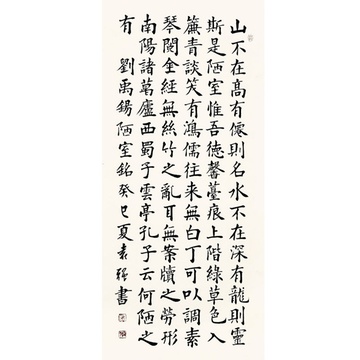 山不在髙有僊則名水不在深有龍則靈
斯是陋室惟吾德馨薹痕上階綠草色入
簾青談笑有鴻儒往来無白丁可以調素
琴閱金經無絲竹之亂耳無案牘之勞形
南陽諸葛廬西蜀子雲亭孔子云何陋之
有 劉禹錫陋室銘癸巳夏袁書